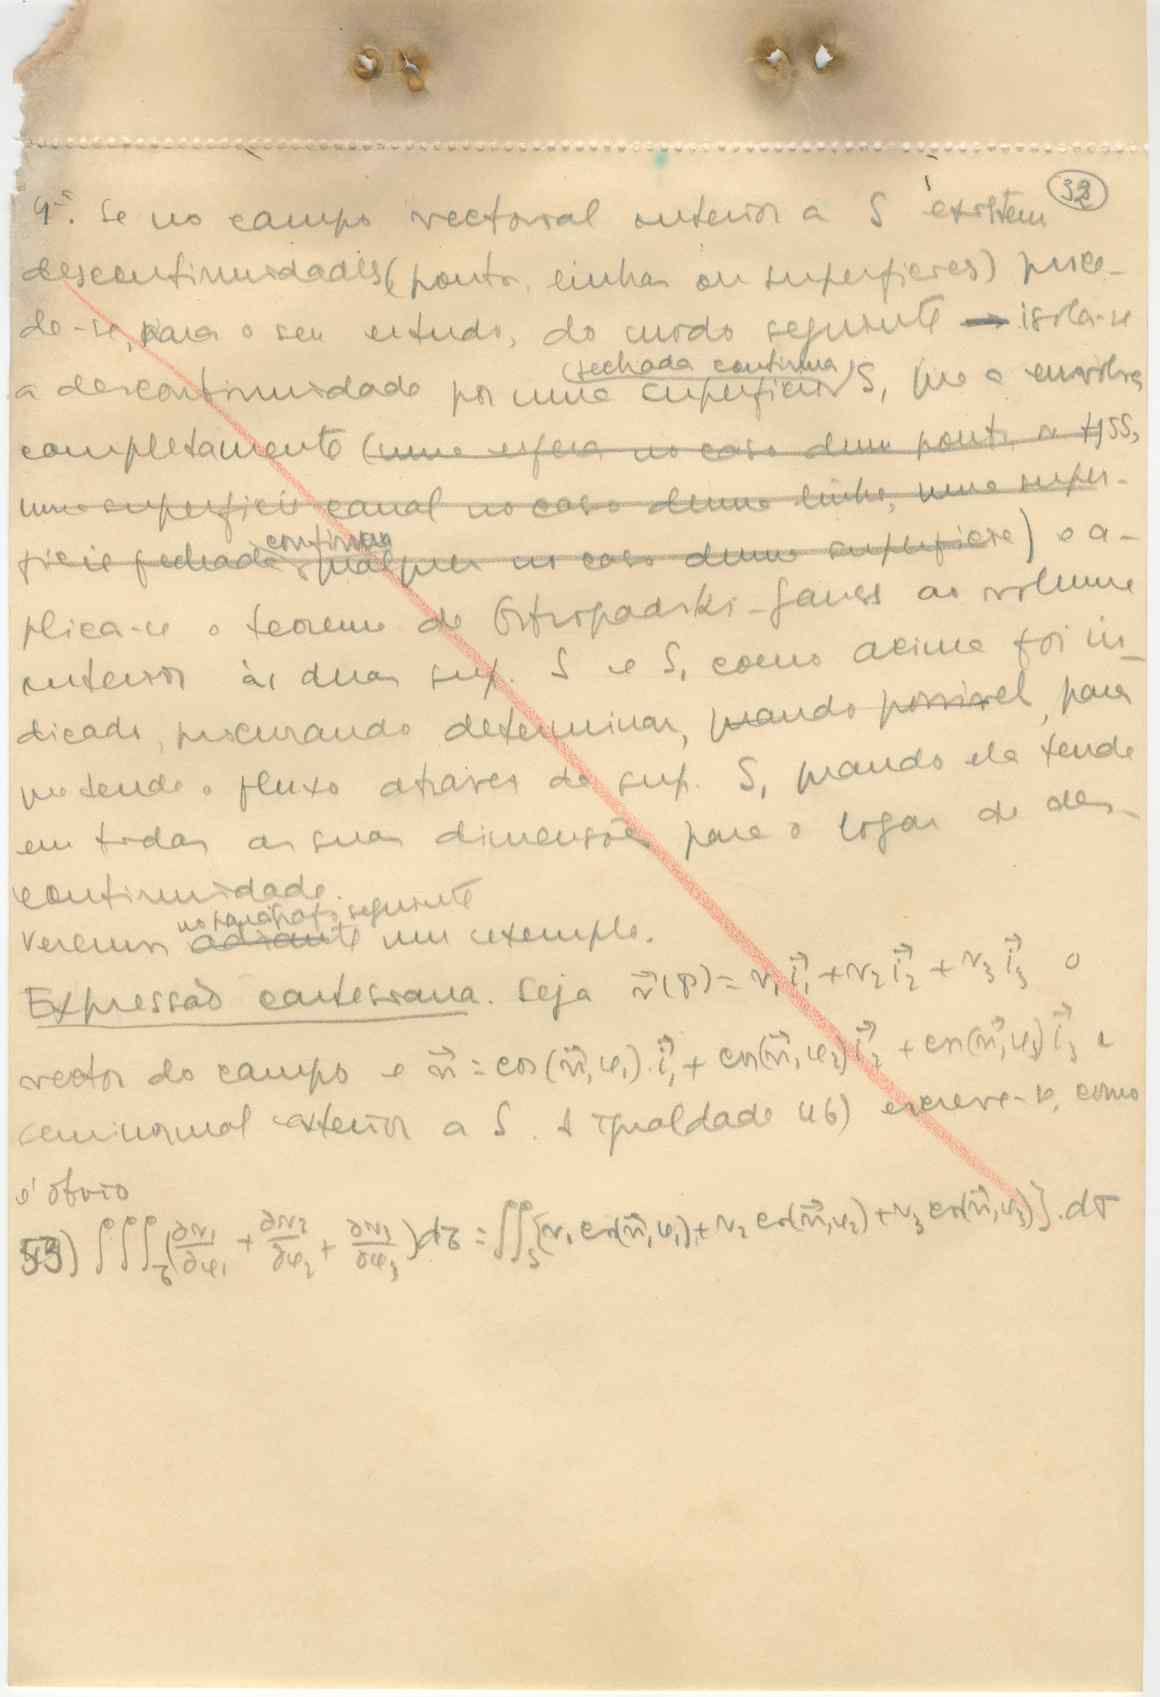 32
4ª. Se no campo vectorial interior a S existem
descontinuidades (pontos, linhas ou superfícies) proce-
de-se, para o seu estudo, do modo seguinte — isola-se
(fechada contínua)
a descontinuidade por uma superfície S₁ que a envolve
completamente (uma esfera no caso dum ponto a
uma superfície canal no caso duma linha, uma super-
contínua
fície fechada qualquer no caso duma superfície) e a-
plica-se o teorema de Ostrogradski-Gauss ao volume
interior às duas sup. S e S₁ como acima foi in-
dicado, procurando determinar, quando possível, para
que tende o fluxo através da sup. S₁ quando ela tende
em todas as suas dimensões para o logar de des-
continuidade.
no parágrafo seguinte
Veremos adiante um exemplo.
Expressão cartesiana. Seja v⃗(P) = v₁i⃗₁ + v₂i⃗₂ + v₃i⃗₃ o
vector do campo e n⃗ = cos(n⃗,φ₁).i⃗₁ + cos(n⃗,φ₂)i⃗₂ + cos(n⃗,φ₃)i⃗₃ a
seminormal exterior a S. A igualdade 46) escreve-se, como
é óbvio
53) ∫∫∫_τ (∂v₁/∂φ₁ + ∂v₂/∂φ₂ + ∂v₃/∂φ₃)dτ = ∫∫_S [v₁ cos(n⃗,φ₁) + v₂ cos(n⃗,φ₂) + v₃ cos(n⃗,φ₃)].dσ